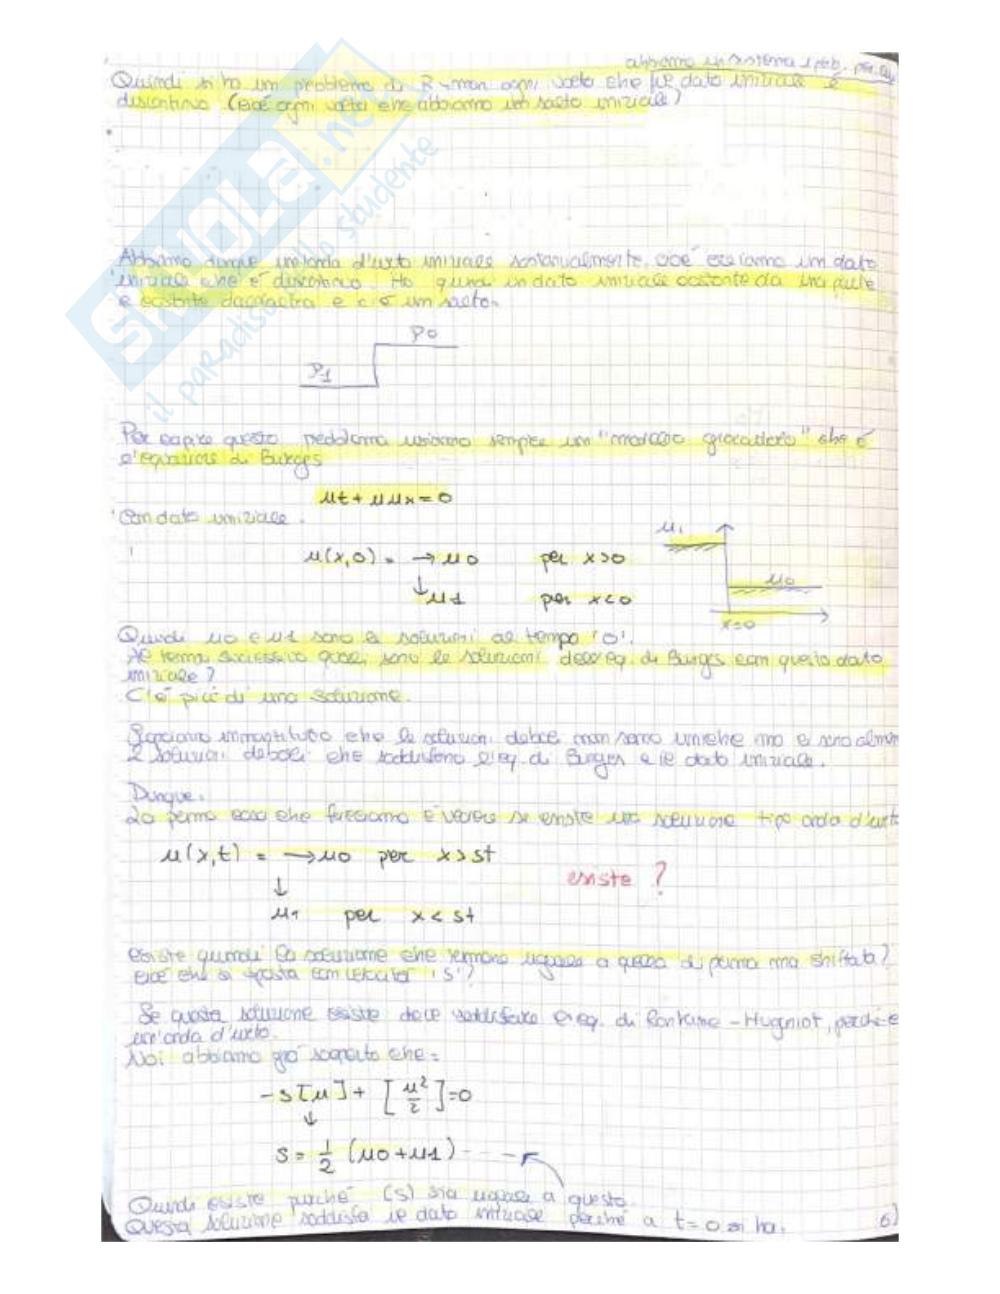 abbiamo un sistema iperb.
Quindi si ha un problema di Riemann ogni volta che il dato iniziale è
discontinuo (cioè ogni volta che abbiamo un salto iniziale)
Abbiamo dunque un'onda d'urto iniziale sostanzialmente, cioè un dato
iniziale che è discontinuo. Ho quindi un dato iniziale costante da una parte
e costante dall'altra e c'è un salto.
P0
P1
Per capire questo problema usiamo sempre un "modello giocattolo" che è
l'equazione di Burges
ut + uux = 0
Con dato iniziale.
u1
u(x,0) = → u0 per x>0
↓ u1 per x<0
u0
x=0
Quindi u0 e u1 sono le soluzioni al tempo '0'.
Al tempo successivo quali sono le soluzioni dell'eq. di Burges con questo dato
iniziale?
C'è più di una soluzione.
che le soluzioni deboli non sono uniche ma ci sono almeno
2 soluzioni deboli che soddisfano l'eq. di Burges e il dato iniziale.
Dunque.
La prima cosa che facciamo è vedere se esiste una soluzione tipo onda d'urto
u(x,t) = → u0 per x > st
esiste ?
↓
u1 per x < st
esiste quindi la soluzione che rimane uguale a quella di prima ma shiftata?
cioè che si sposta con velocità 's'?
Se questa soluzione esiste deve soddisfare l'eq. di Rankine-Hugniot, perché è
un'onda d'urto.
Noi abbiamo già scoperto che:
-s[u] + [u²/2] = 0
↓
s = 1/2 (u0+u1)
Quindi esiste purché (s) sia uguale a questo.
Questa soluzione soddisfa il dato iniziale perché a t=0 si ha.
6)
SKUOLA.net
il paradiso dello studente